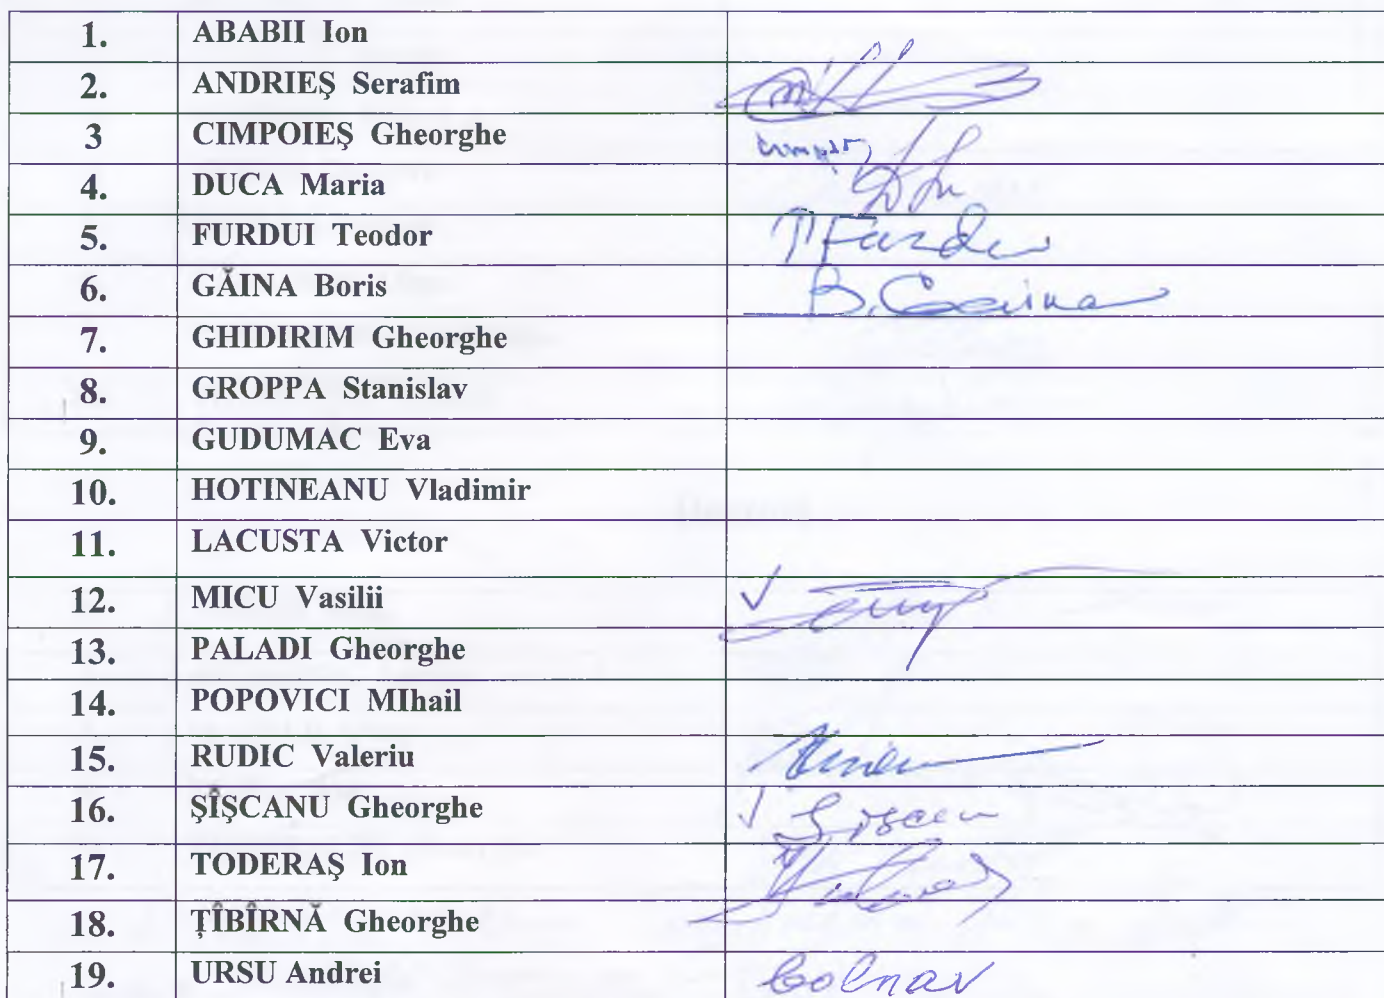 1. ABABII Ion
2. ANDRIEŞ Serafim
3 CIMPOIEŞ Gheorghe
4. DUCA Maria
5. FURDUI Teodor
6. GĂINA Boris B. Gaina
7. GHIDIRIM Gheorghe
8. GROPPA Stanislav
9. GUDUMAC Eva
10. HOTINEANU Vladimir
11. LACUSTA Victor
12. MICU Vasilii
13. PALADI Gheorghe
14. POPOVICI MIhail
15. RUDIC Valeriu
16. ŞÎŞCANU Gheorghe
17. TODERAŞ Ion
18. ŢÎBÎRNĂ Gheorghe
19. URSU Andrei bolnav